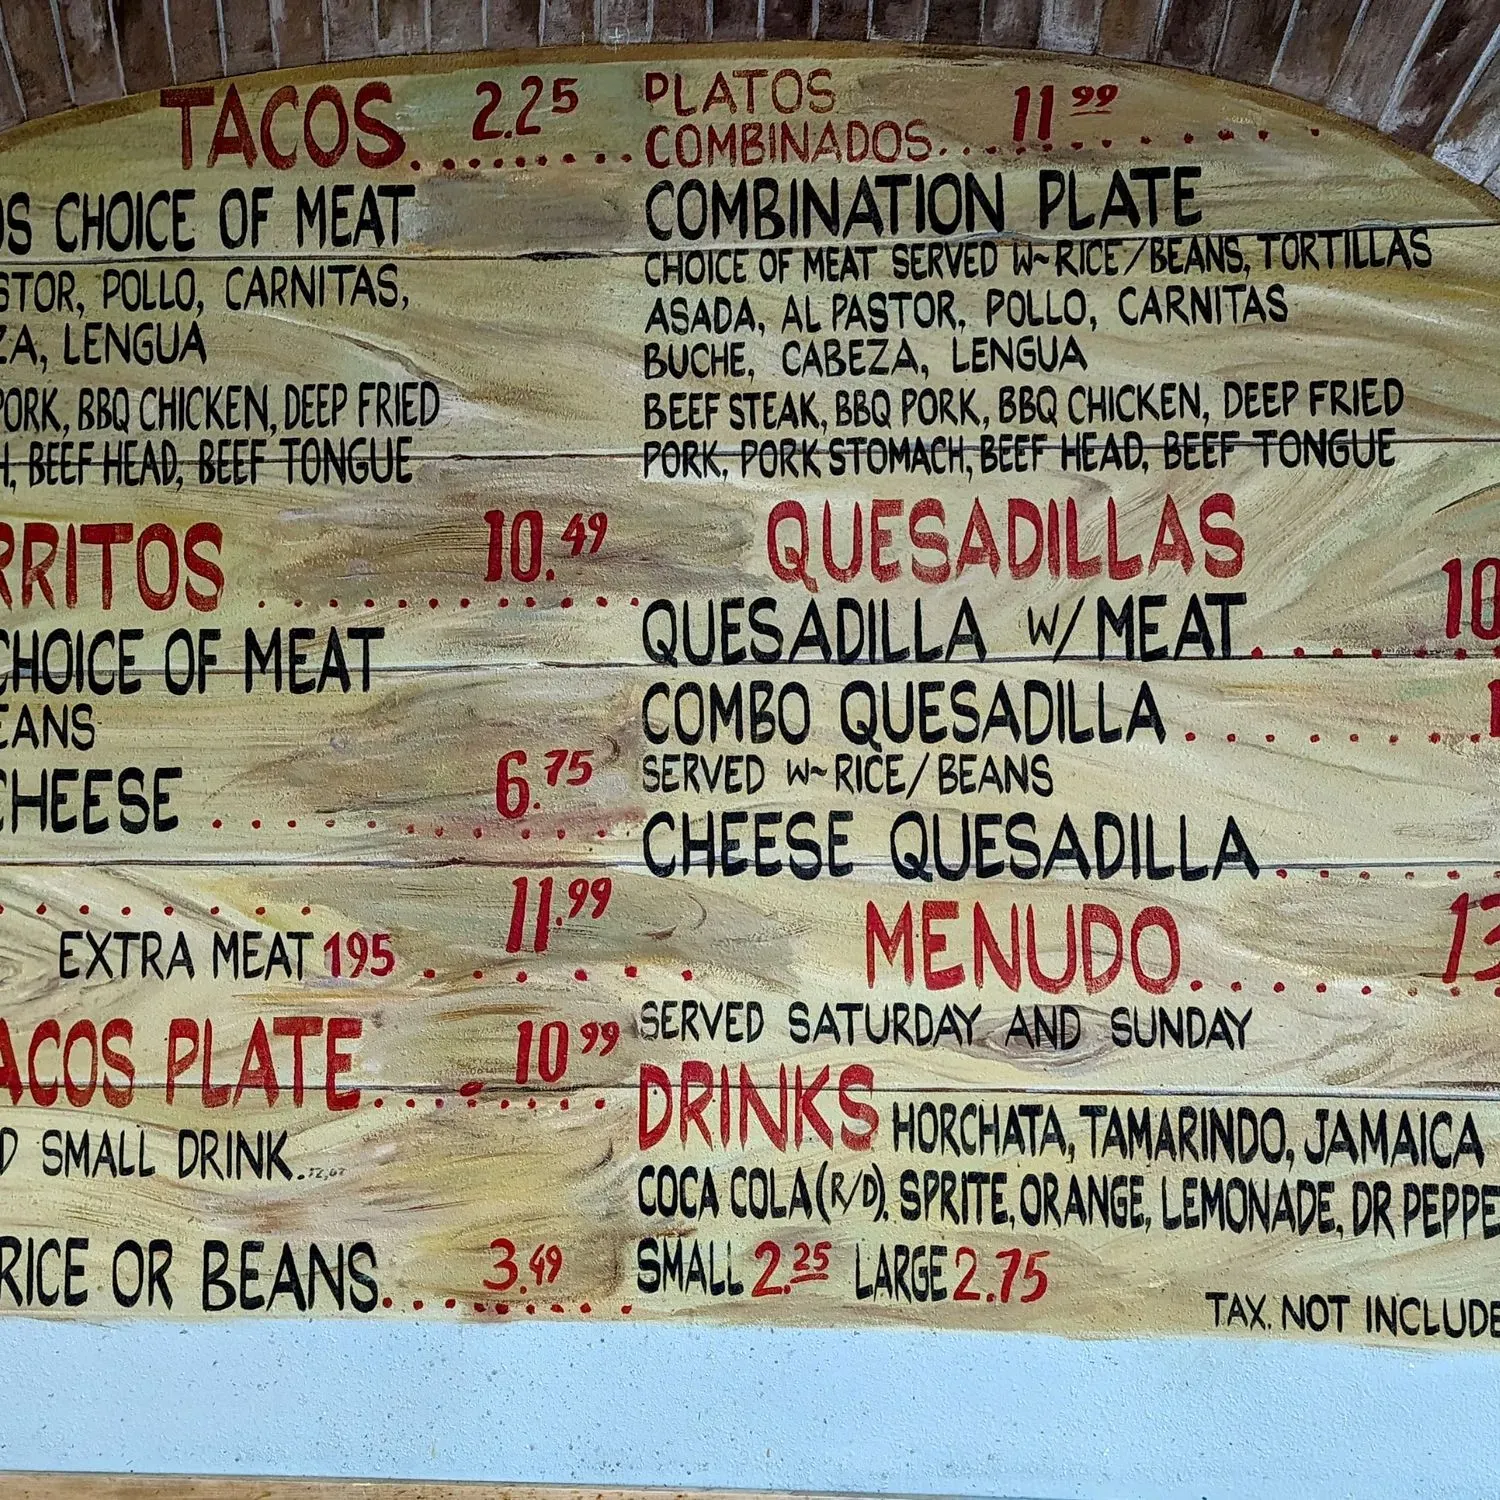 TACOS 2.25
CHOICE OF MEAT
POLLO, CARNITAS,
LENGUA
PORK, BBQ CHICKEN, DEEP FRIED
BEEF HEAD, BEEF TONGUE
RRITOS 10.49
CHOICE OF MEAT
EANS
CHEESE 6.75
11.99
EXTRA MEAT 195
ACOS PLATE 10 99
SMALL DRINK
RICE OR BEANS 3.49
PLATOS
COMBINADOS 11 99
COMBINATION PLATE
CHOICE OF MEAT SERVED W~RICE/BEANS, TORTILLAS
ASADA, AL PASTOR, POLLO, CARNITAS
BUCHE, CABEZA, LENGUA
BEEF STEAK, BBQ PORK, BBQ CHICKEN, DEEP FRIED
PORK, PORK STOMACH, BEEF HEAD, BEEF TONGUE
QUESADILLAS
QUESADILLA W/MEAT 10
COMBO QUESADILLA
SERVED W~RICE/BEANS
CHEESE QUESADILLA
MENUDO 13
SERVED SATURDAY AND SUNDAY
DRINKS HORCHATA, TAMARINDO, JAMAICA
COCA COLA (R/D), SPRITE, ORANGE, LEMONADE, DR PEPPE
SMALL 2.25 LARGE 2.75
TAX. NOT INCLUDE